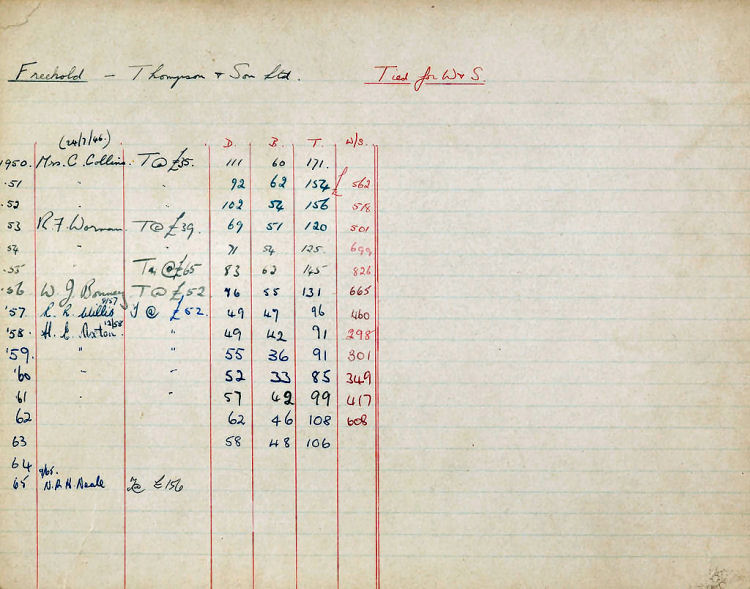 Freehold — Thompson & Son Ltd. Tied for W & S.
(24/7/46.) D. B. T. W/S.
1950. Mrs. C. Collins. T @ £35. 111 60 171
.51 " " 92 62 154 £ 562
.52 " " 102 54 156 518
53 R F Worman T @ £39. 69 51 120 501
54 " " 71 54 125. 699
.55 " @ £65 83 62 145 826
.56 W. J. Bonney T @ £52 76 55 131 665
9/57
'57. Willis T @ £52. 49 47 96 460
12/58
'58. H. E. Axton. " 49 42 91 298
'59. " " 55 36 91 301
'60 " " 52 33 85 349
'61 " 57 42 99 417
62 62 46 108 608
63 58 48 106
64
9/65.
65 N. R. H. Neale T @ £156